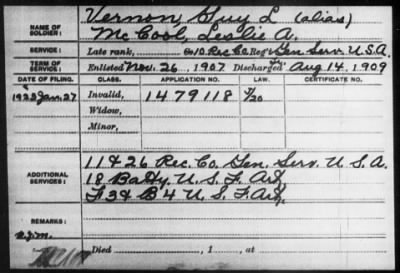 NAME OF SOLDIER: Vernon, Guy L. (alias)
McCool, Leslie A.
SERVICE: Late rank, 6 & 10. Rec. Co. Reg't Gen. Serv. U.S.A.
TERM OF SERVICE: Enlisted Nov. 26, 1907 Discharged Aug 14, 1909
DATE OF FILING. CLASS. APPLICATION NO. LAW. CERTIFICATE NO.
1925 Jan. 27 Invalid, 1479118
Widow,
Minor,
ADDITIONAL SERVICES: 11 & 26 Rec. Co. Gen. Serv. U.S.A.
18 Batty. U.S. F. Art.
F 3 & B 4 U.S. F. Art.
REMARKS:
Died , 1 , at